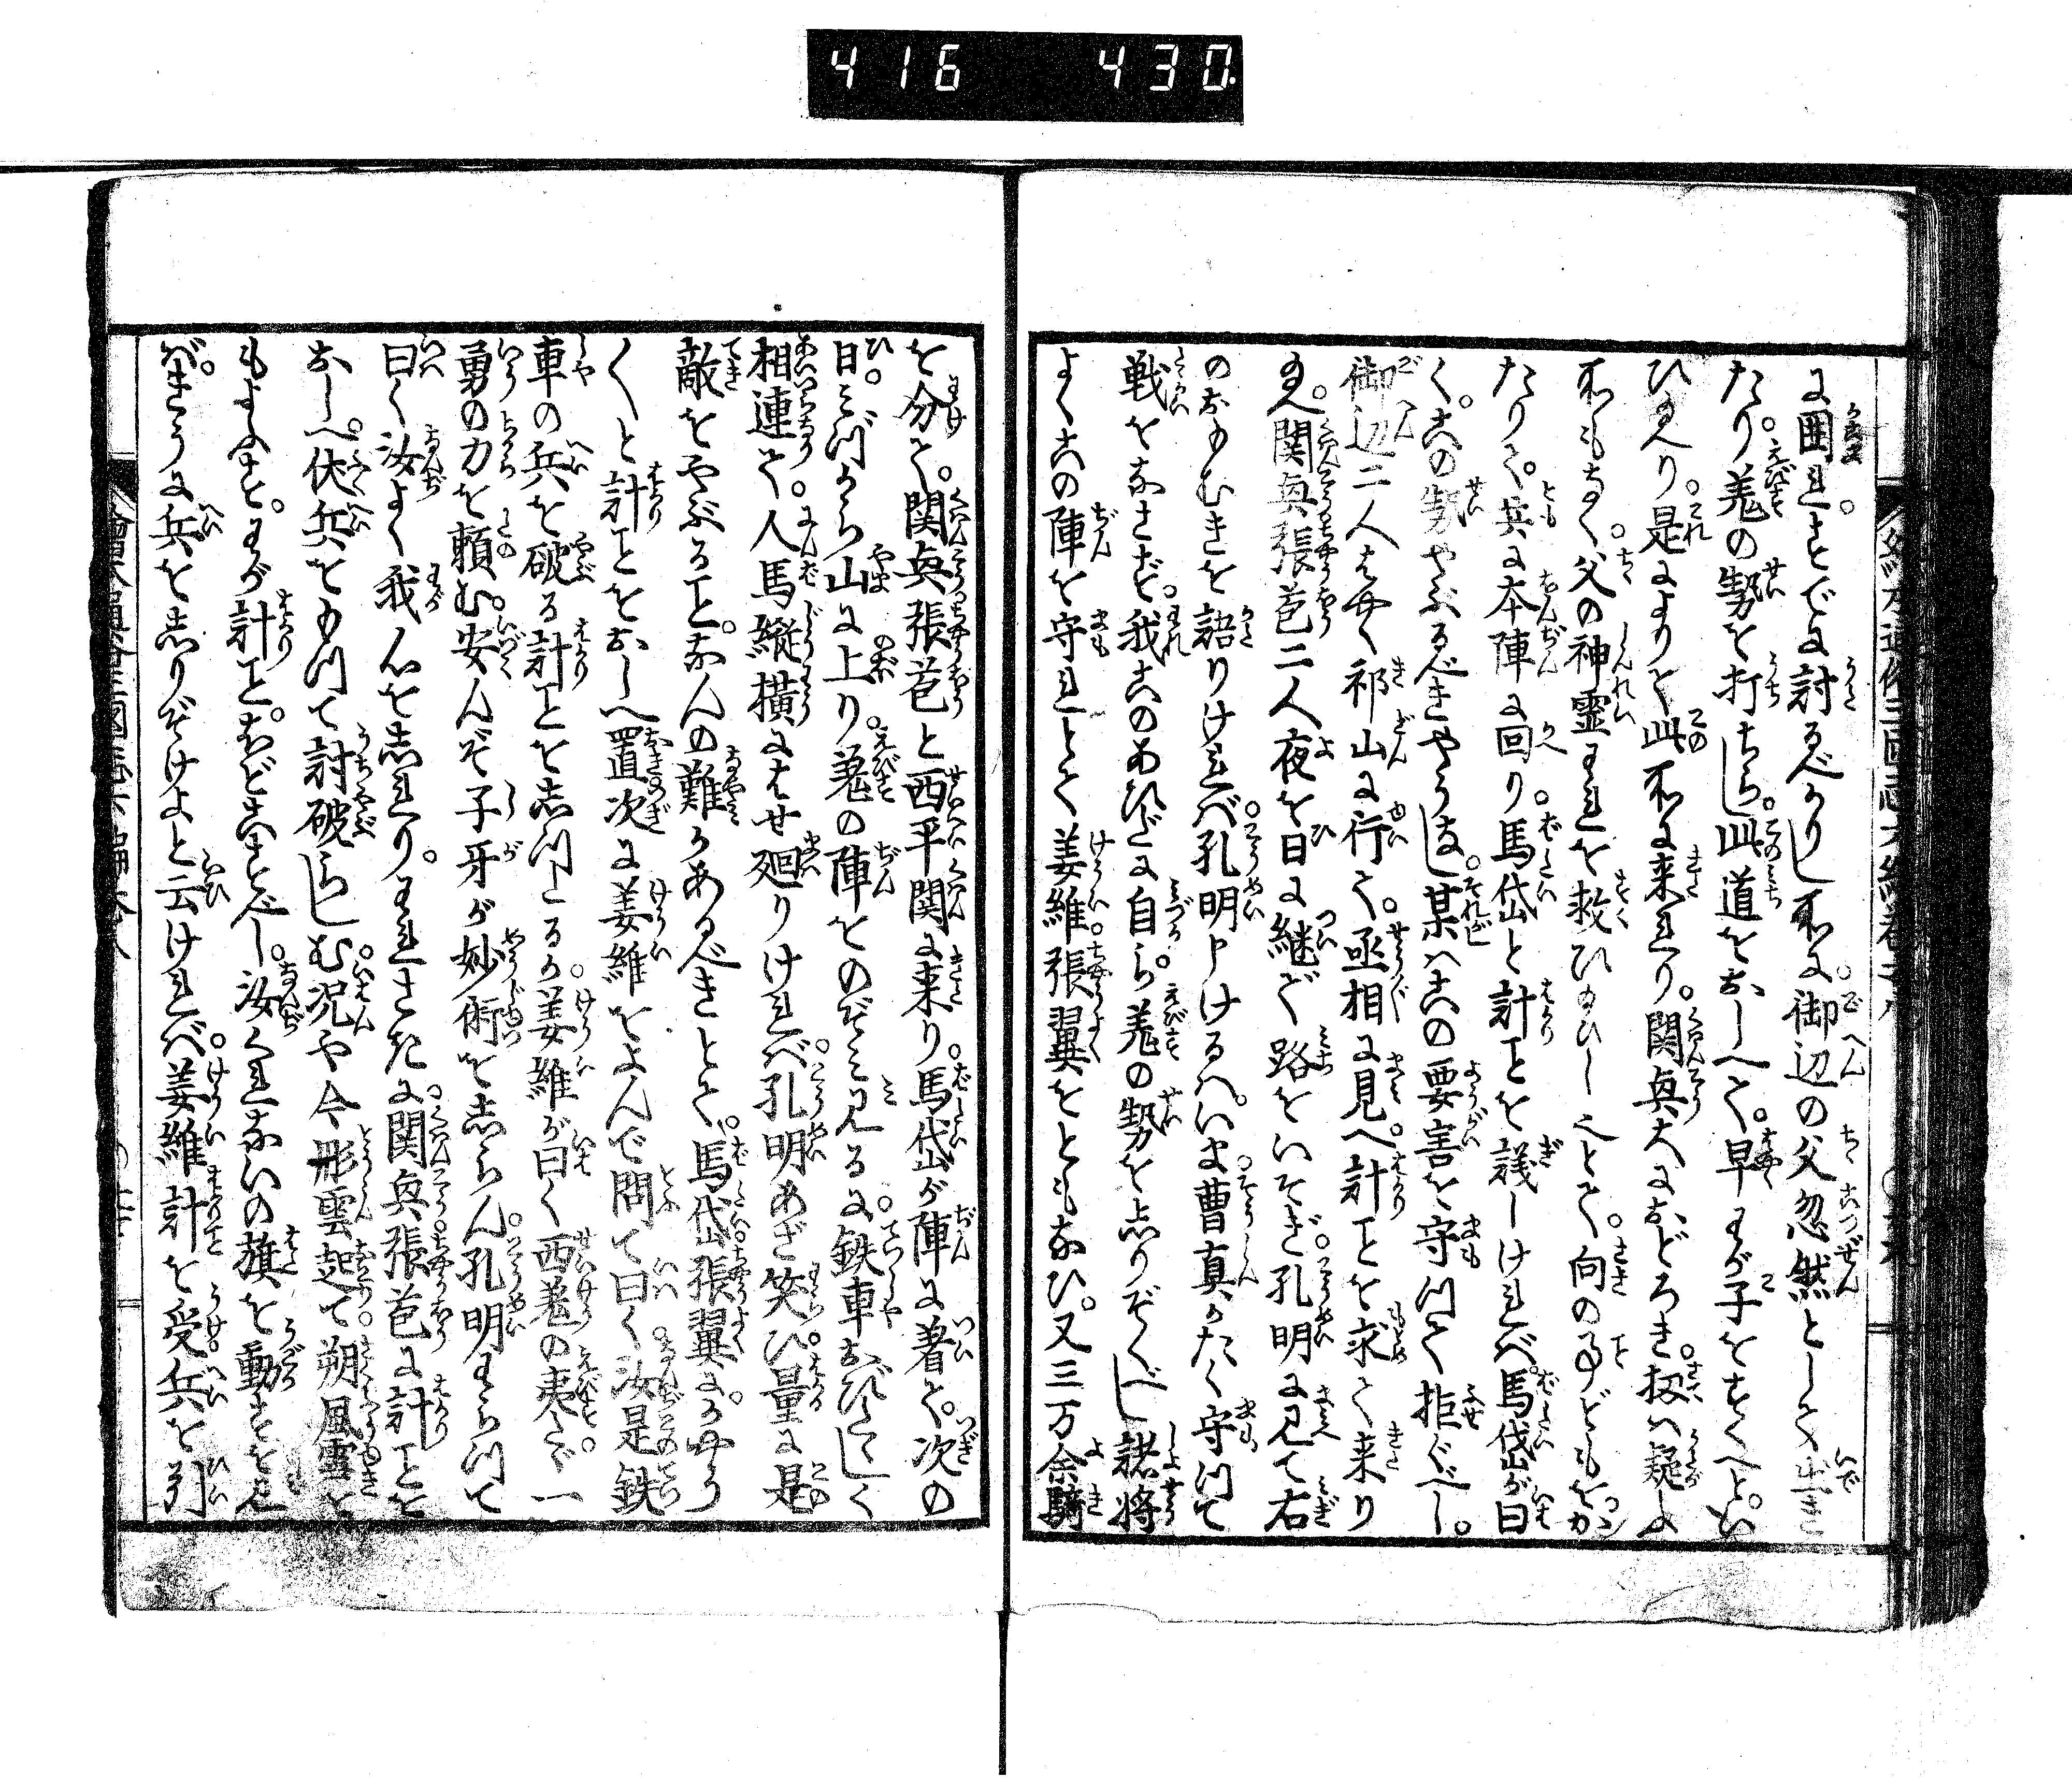 416 430
に囲れ。すでに討るべかりし所に。御辺の父忽然として出き
たり。羗の勢を打ちらし。此道をおしへて。早くわが子をすくへと。い
ひ玉へり。是によりて此所に来れり。関興大におどろき。扨は疑ふ
所もなく。父の神霊われを救ひ玉ひしことて。向の事どもをか
たりて。兵に本陣に回り。馬岱と計ことを議しければ。馬岱が曰
く。この勢やぶるべきやうなし。某はこの要害を守つて拒ぐべし。
御辺二人はやく祁山に行て。丞相に見へ計ことを求て来り
玉へ。関興張苞二人夜を日に継で路をいそぎ。孔明に見て右
のおもむきを語りければ。孔明申けるは。いま曹真かたく守つて
戦をなさず。我このあひだに自ら。羗の勢を退りぞくべし。諸将
よくこの陣を守れとて姜維。張翼をともなひ。又三万余騎
を分て。関興張苞と西平関に来り。馬岱が陣に着て。次の
日。みづから山に上り。羗の陣をのぞみ見るに。鉄車おびたゝしく
相連て。人馬縦横にはせ廻りければ。孔明あざ笑ひ。量に是
敵をやぶること。なんの難かあるべきとて。馬岱。張翼に。かやう
〱と計ことをおしへ置次に姜維をよんで問て曰く。汝是鉄
車の兵を破る計ことを志つたるか。姜維が曰く西羗の夷。たゞ一
勇の力を頼む。安んぞ子牙が妙術を志らん。孔明わらつて
曰く汝よく我心を志れり。われさきに。関興。張苞に計ことを
おしへ。伏兵をもつて討破らしむ。況や今彤雲起て。朔風雪を
もよふす。わが計こと。ほどこすべし。汝くれないの旗を動すを見
ば。きうに兵を志りぞけよと云ければ。姜維計を受。兵を引